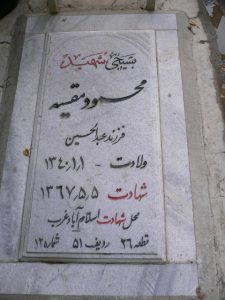 بسیجی شهید
محمود مقیسه
فرزند عبدالحسین
ولادت - ۱۳۴۰٫۱٫۱
شهادت ۱۳۶۷٫۵٫۵
محل شهادت اسلام آباد غرب
قطعه ۲۶ ردیف ۵۱ شماره ۱۲